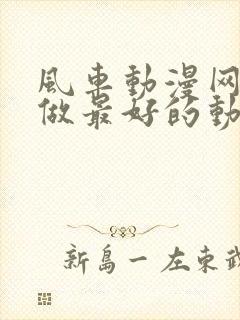 風車動漫网
做最好的動
新島一左東武